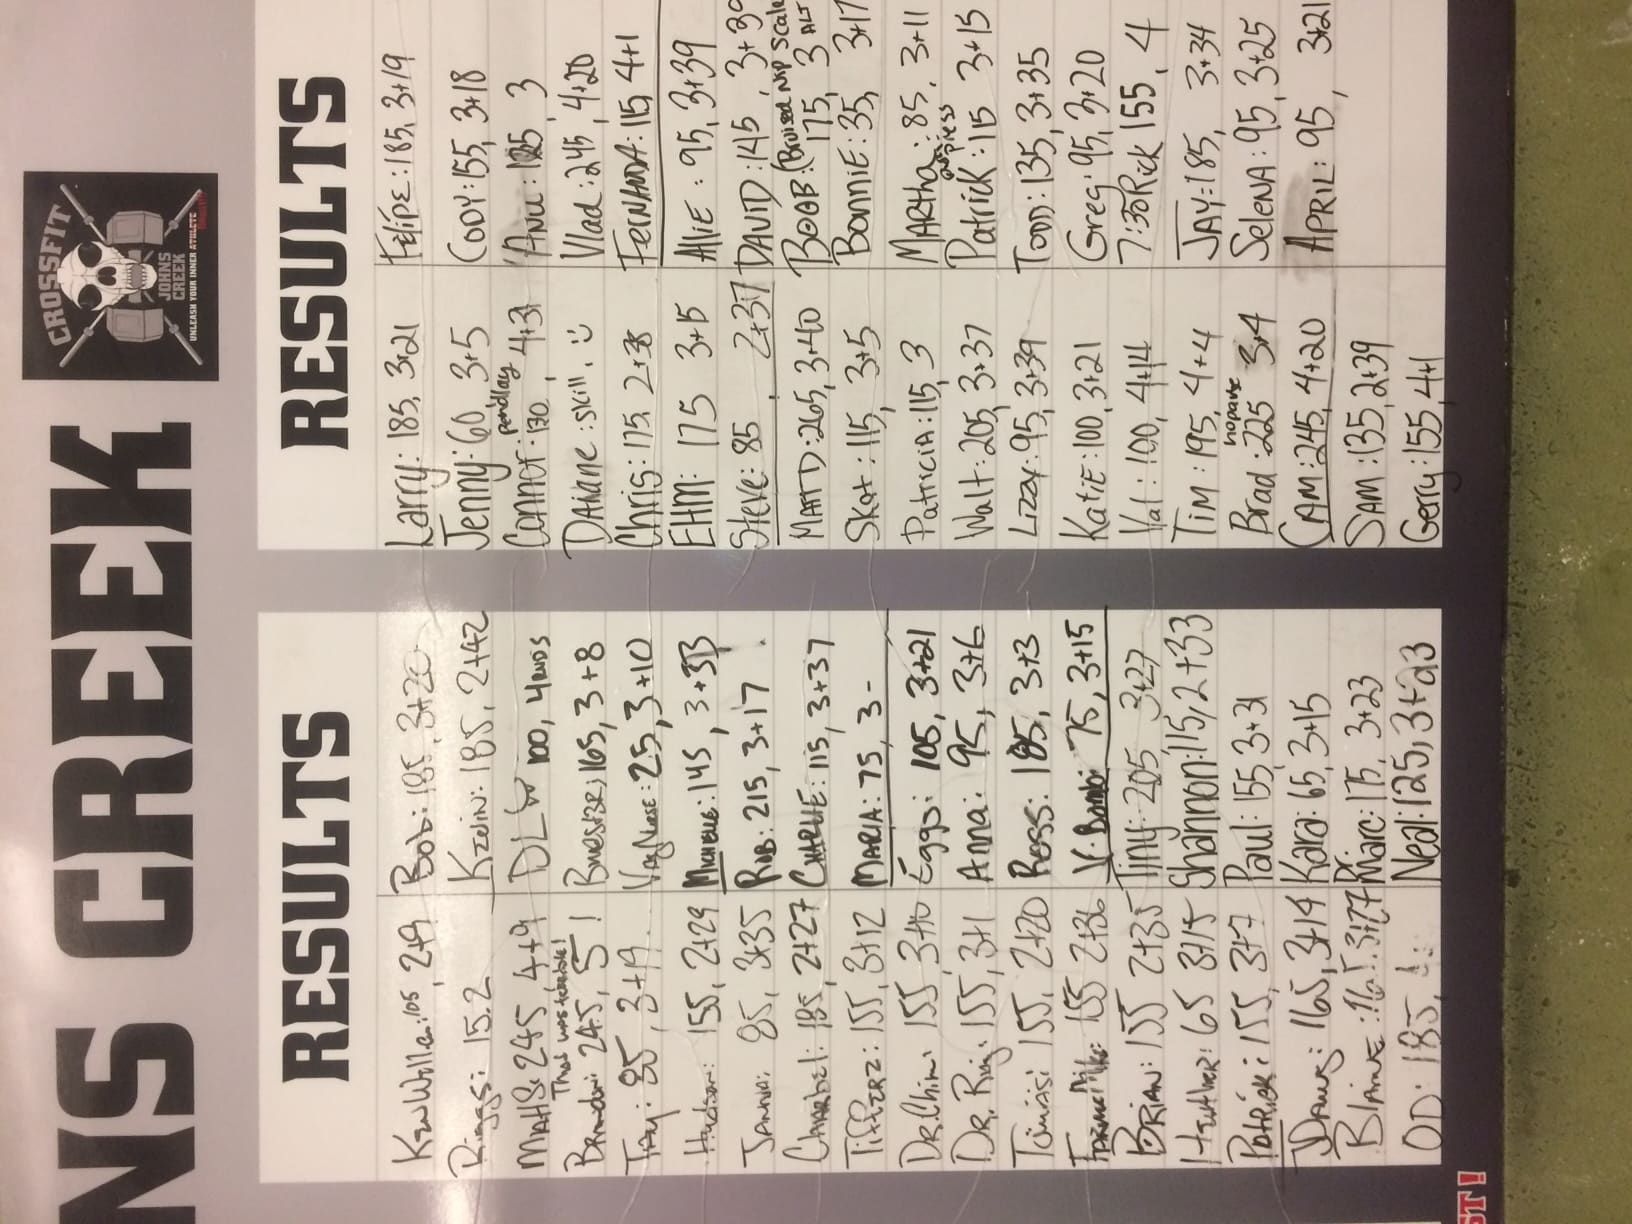 NS CREEK
CROSSFIT
JOHNS
CREEK
UNLEASH YOUR INNER ATHLETE
RESULTS
Ken Willan: 105, 2+9
Riggs: 15.2
Matt S: 245, 4+9
That was terrible!
Brandon: 245, 5!
Tay: 85, 3+19
Hudson: 155, 2+29
Janna: 85, 3+35
Charbel: 185, 2+27
Tifferz: 155, 3+12
Dr. Chin: 155 3+10
Dr. Ring: 155, 3+1
Tomasi 155, 2+20
155 2+36
Brian: 155 2+35
Heather: 65 3+15
Patrick: 155, 3+7
JDawg: 165, 3+14
Blaine: 165, 3+27
OD: 185,
Bob: 185, 3+20
Kzelin: 185, 2+42
DLW 100, 4RNDS
165, 3+8
25, 3+10
Michelle: 145, 3+33
Rob: 215, 3+17
Charlie: 115, 3+37
Maria: 75, 3-
Eggo: 105, 3+21
Anna: 95, 3+6
Ross: 185, 3+3
V. Bomb: 75, 3+15
Tiny: 205 3+27
Shannon: 115, 2+33
Paul: 155, 3+31
Kara: 65, 3+15
Marc: 175, 3+23
Neal: 125, 3+23
RESULTS
Larry: 185, 3+21
Jenny: 60, 3+5
pendlay
Connor: 170, 4+31
Dahane: skill, :)
Chris: 175, 2+38
EHM: 175 3+15
Steve: 85, 2+37
Matt D: 265, 3+40
Skot: 115, 3+5
Patricia: 115, 3
Walt: 205, 3+37
Lizzy: 95, 3+39
Katie: 100, 3+21
Val: 100, 4+14
Tim: 195, 4+4
Brad: 225 3+4
CAM: 245, 4+20
SAM: 135, 2+39
Gerry: 155, 4+1
Felipe: 185, 3+19
Cody: 155, 3+18
Anu: 125 3
Vlad: 245, 4+20
Fernanda: 115, 4+1
Allie: 95, 3+39
David: 145, 3+30
175, 3 ALT
Bonnie: 35, 3+17
Martha: 85, 3+11
press
Patrick: 115 3+15
Todd: 135, 3+35
Greg: 95, 3+20
7:30 Rick 155, 4
Jay: 185, 3+34
Selena: 95, 3+25
April: 95, 3+21
ST!